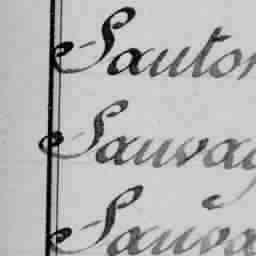 Sauton
Sauvag
Sauva